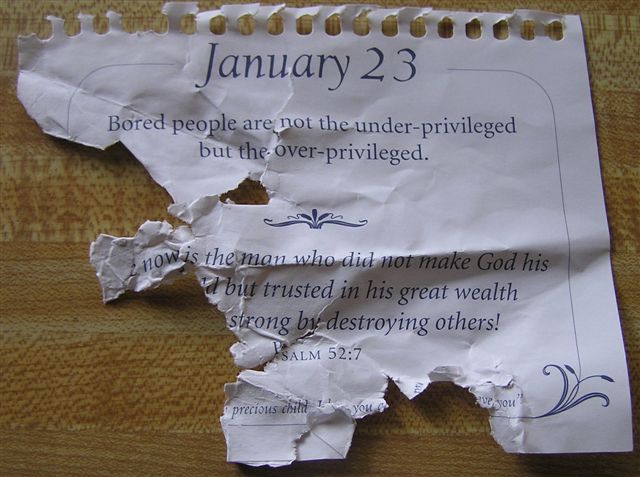 January 23
Bored people are not the under-privileged
but the over-privileged.
now is the man who did not make God his
but trusted in his great wealth
strong by destroying others!
PSALM 52:7
precious child I you
you"